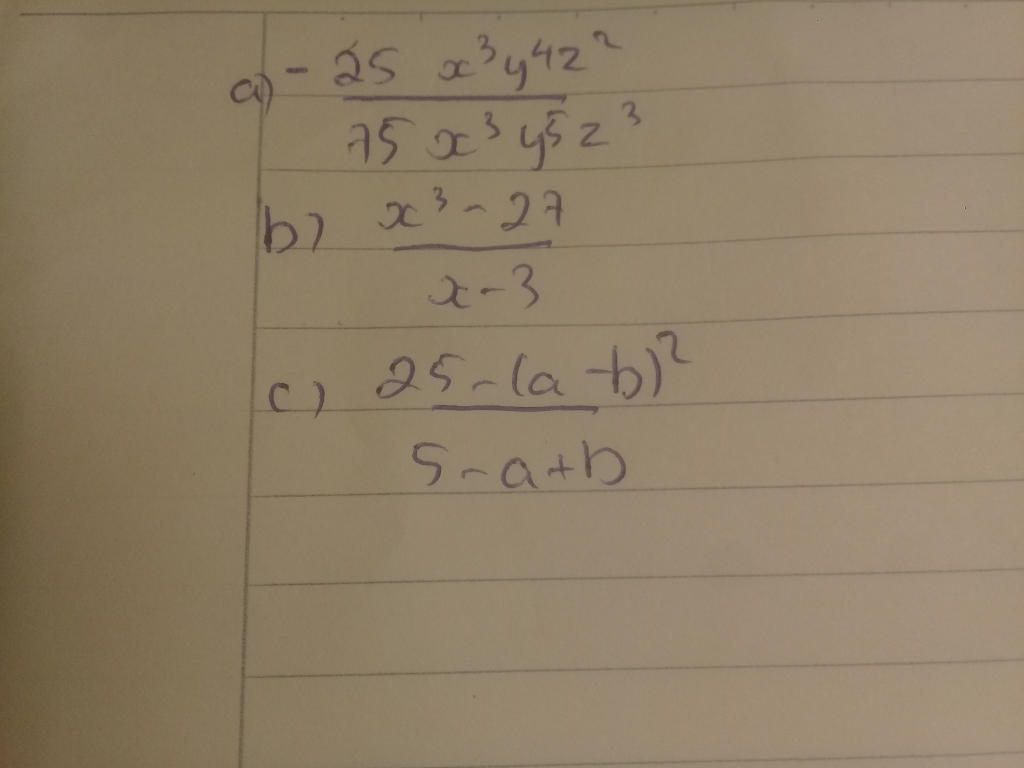 a) - 25 x³y⁴z²
75 x³y⁵z³
b) x³ - 27
x - 3
c) 25 - (a - b)²
5 - a + b